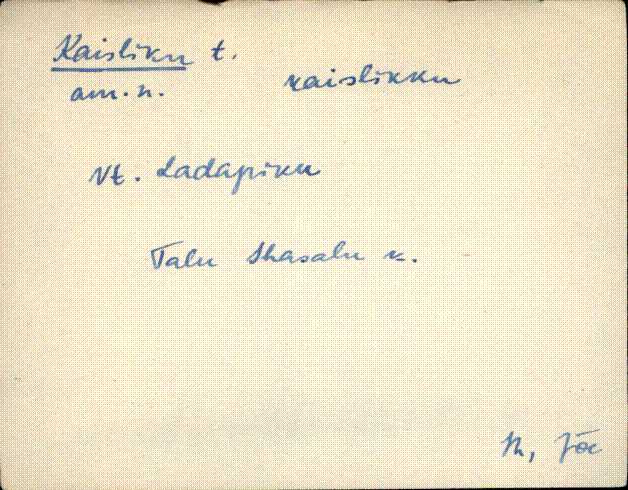 Kaisliku t.
am. n. kaislikku
Vt. Ladapiku
Talu Ihasalu k.
Jõe